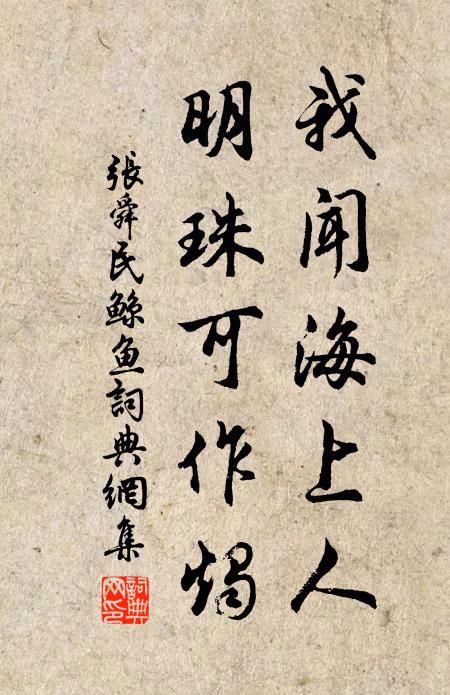 我聞海上人
明珠可作燭
張舜民鯨魚詞典網集
詞典網印